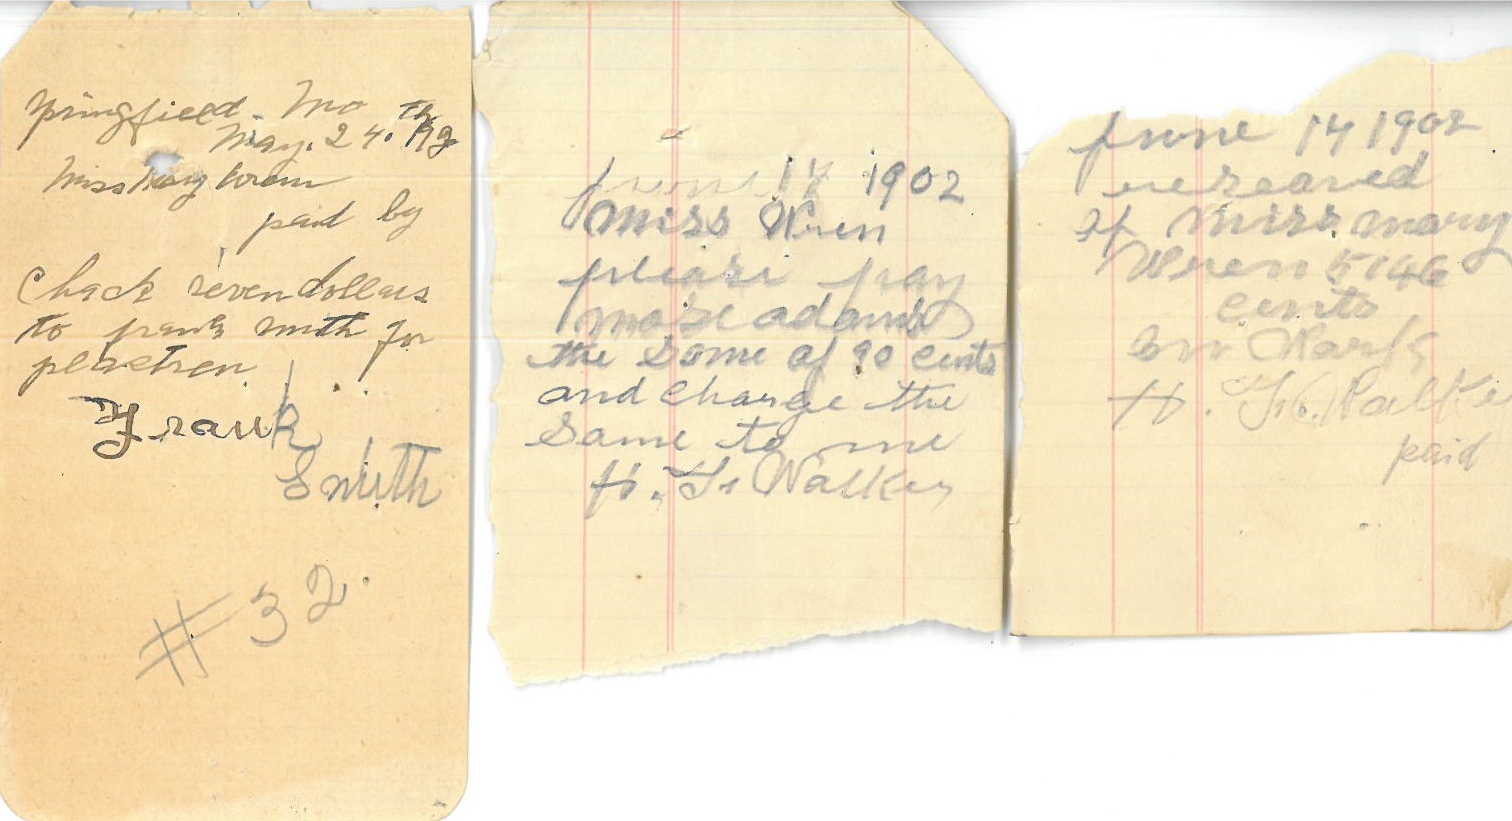 Springfield. Mo
May. 24. th
Miss May Wrenn
paid by
Check seven dollars
to frank smith for
Frank
Smith
#32
june 14 1902
Miss Wren
please pay
mose adams
the Some of 90 cents
and charge the
Same to me
H. T. Walker
june 14 1902
reseaved
of Miss mary
Wren 5146
cents
on Wark
H. T. Walke
paid